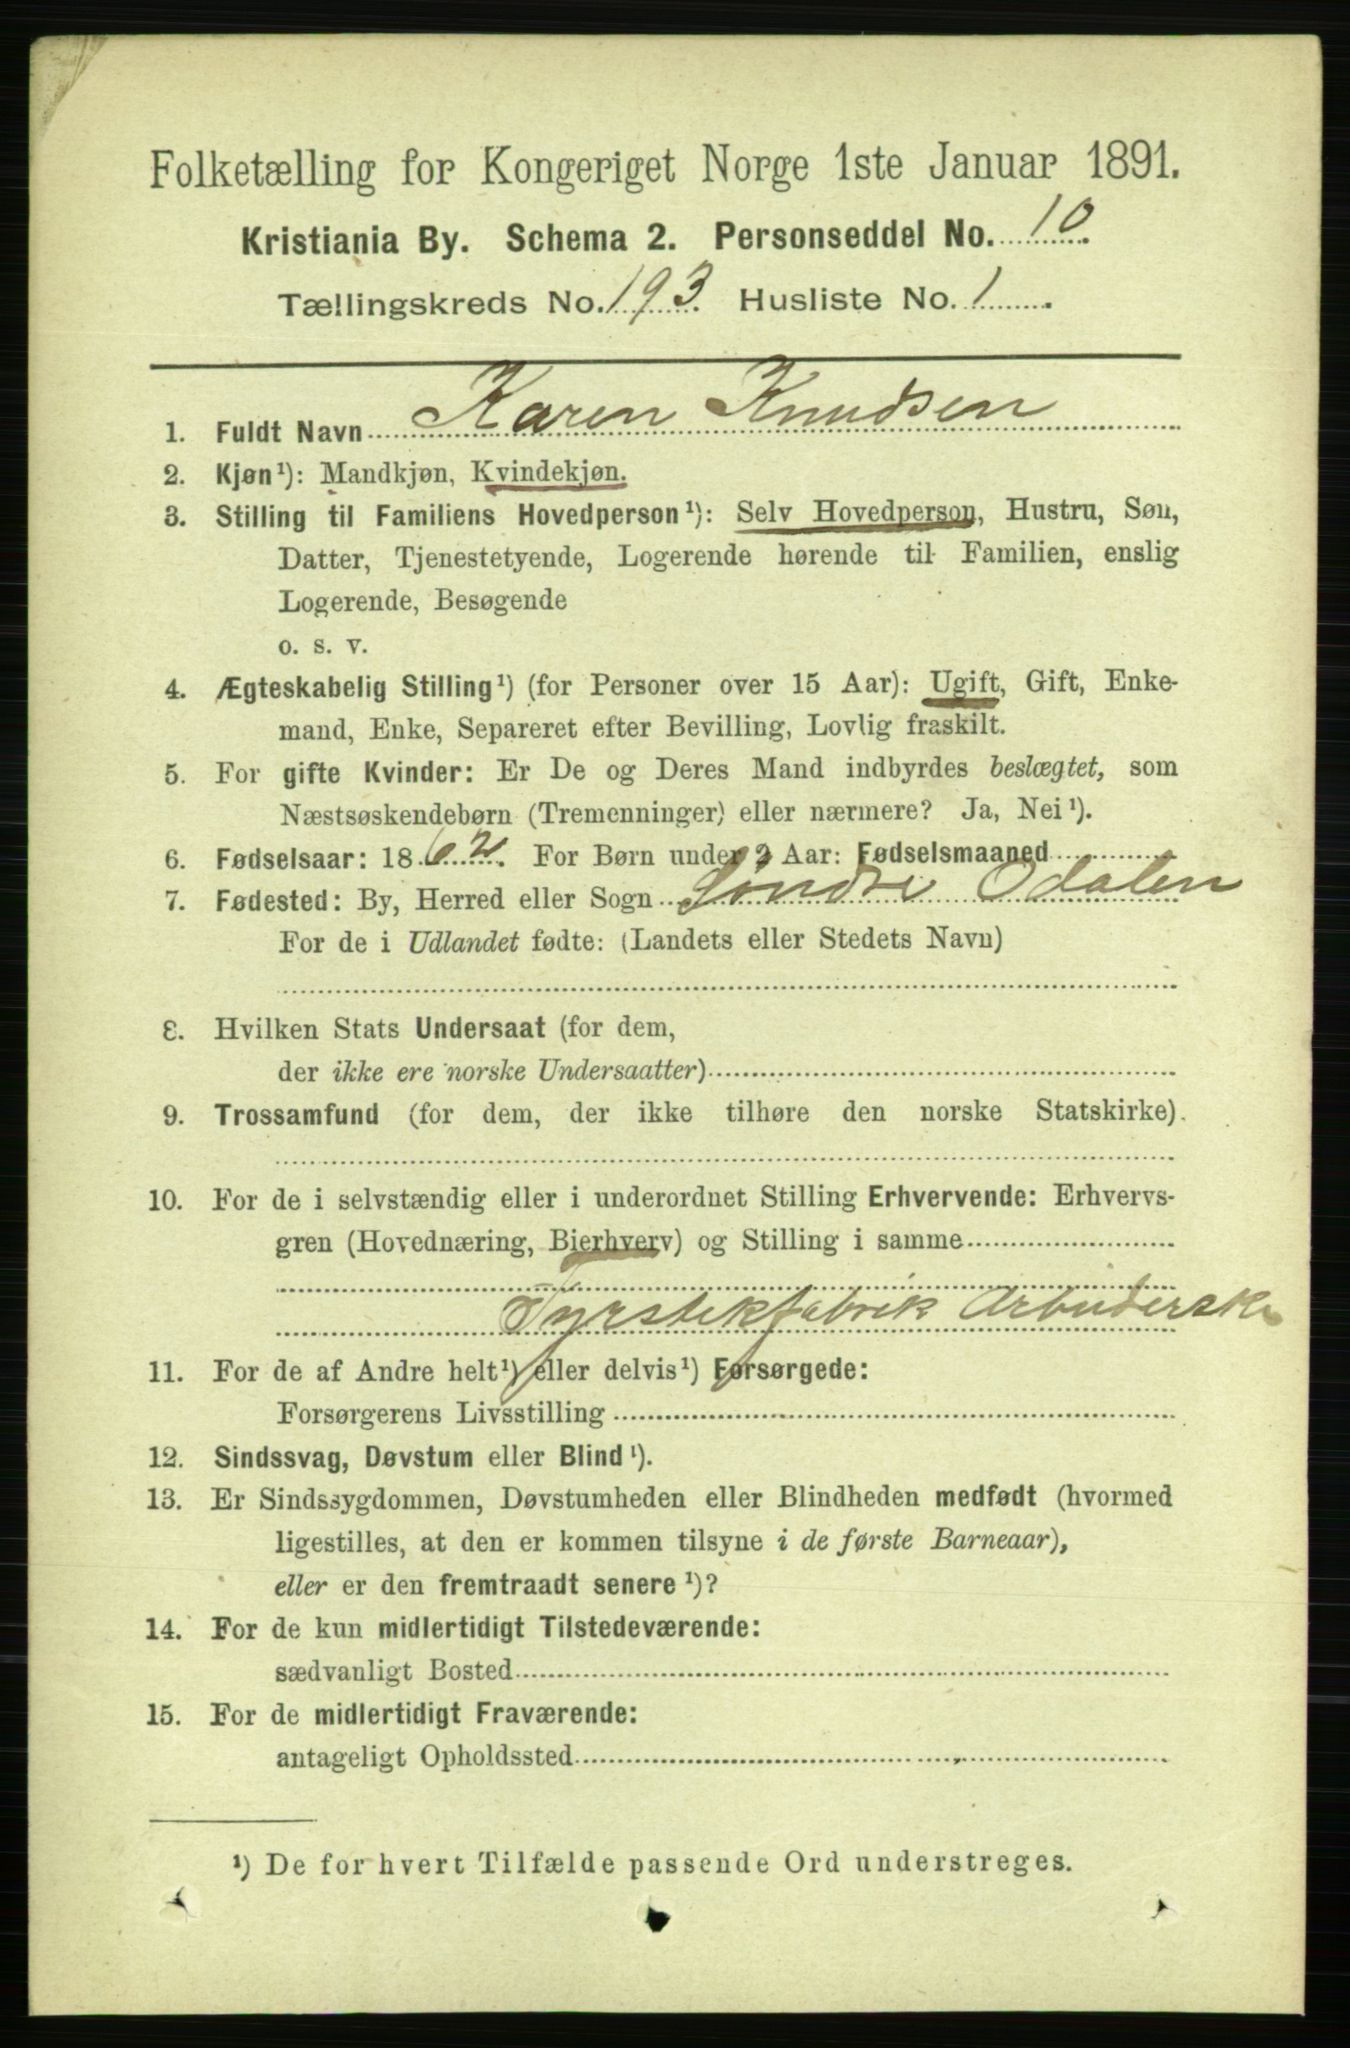 Folketælling for Kongeriget Norge 1ste Januar 1891.
Kristiania By. Schema 2. Personseddel No. 10.
Tællingskreds No. 193. Husliste No. 1.
1. Fuldt Navn Karen Knudsen
2. Kjøn¹): Mandkjøn, Kvindekjøn.
3. Stilling til Familiens Hovedperson¹): Selv Hovedperson, Hustru, Søn,
Datter, Tjenestetyende, Logerende hørende til Familien, enslig
Logerende, Besøgende
o. s. v.
4. Ægteskabelig Stilling¹) (for Personer over 15 Aar): Ugift, Gift, Enke-
mand, Enke, Separeret efter Bevilling, Lovlig fraskilt.
5. For gifte Kvinder: Er De og Deres Mand indbyrdes beslægtet, som
Næstsøskendebørn (Tremenninger) eller nærmere? Ja, Nei¹).
6. Fødselsaar: 1862. For Børn under 2 Aar: Fødselsmaaned
7. Fødested: By, Herred eller Sogn Söndre Odalen
For de i Udlandet fødte: (Landets eller Stedets Navn)
8. Hvilken Stats Undersaat (for dem,
der ikke ere norske Undersaatter)
9. Trossamfund (for dem, der ikke tilhøre den norske Statskirke).
10. For de i selvstændig eller i underordnet Stilling Erhvervende: Erhvervs-
gren (Hovednæring, Bierhverv) og Stilling i samme
Fyrstikfabrik Arbeiderske
11. For de af Andre helt¹) eller delvis¹) Forsørgede:
Forsørgerens Livsstilling
12. Sindssvag, Døvstum eller Blind¹).
13. Er Sindssygdommen, Døvstumheden eller Blindheden medfødt (hvormed
ligestilles, at den er kommen tilsyne i de første Barneaar),
eller er den fremtraadt senere¹)?
14. For de kun midlertidigt Tilstedeværende:
sædvanligt Bosted
15. For de midlertidigt Fraværende:
antageligt Opholdssted
¹) De for hvert Tilfælde passende Ord understreges.